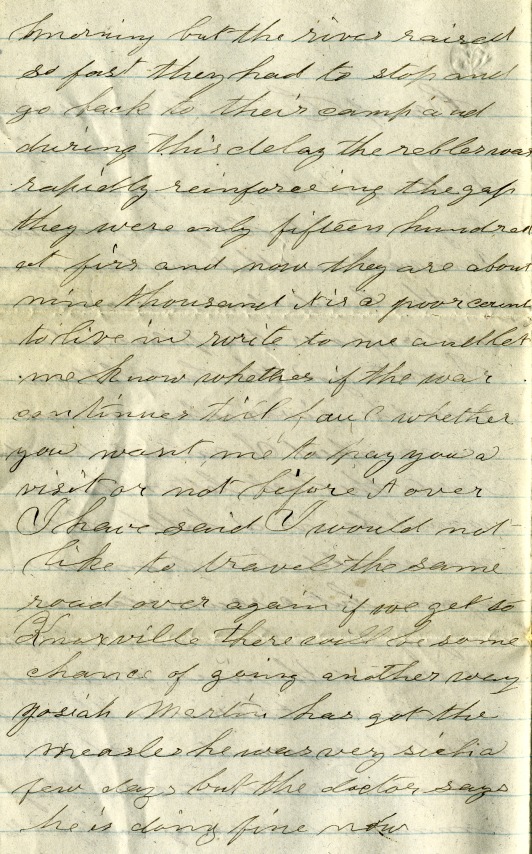 morning but the river raised
so fast they had to stop and
go back to their camp and
during this delay the rebler was
rapidly reinforceing the gap
they were only fifteen hundred
at firs and now they are about
nine thousand it is a poor
to live in write to me and let
me know whether if the war
continues till faul whether
you want me to pay you a
visit or not before it over
I have said I would not
like to travel the same
road over again if we get to
Knoxville there will be some
chance of going another way
Josiah Martin has got the
measles he was very sick a
few days but the doctor says
he is doing fine now